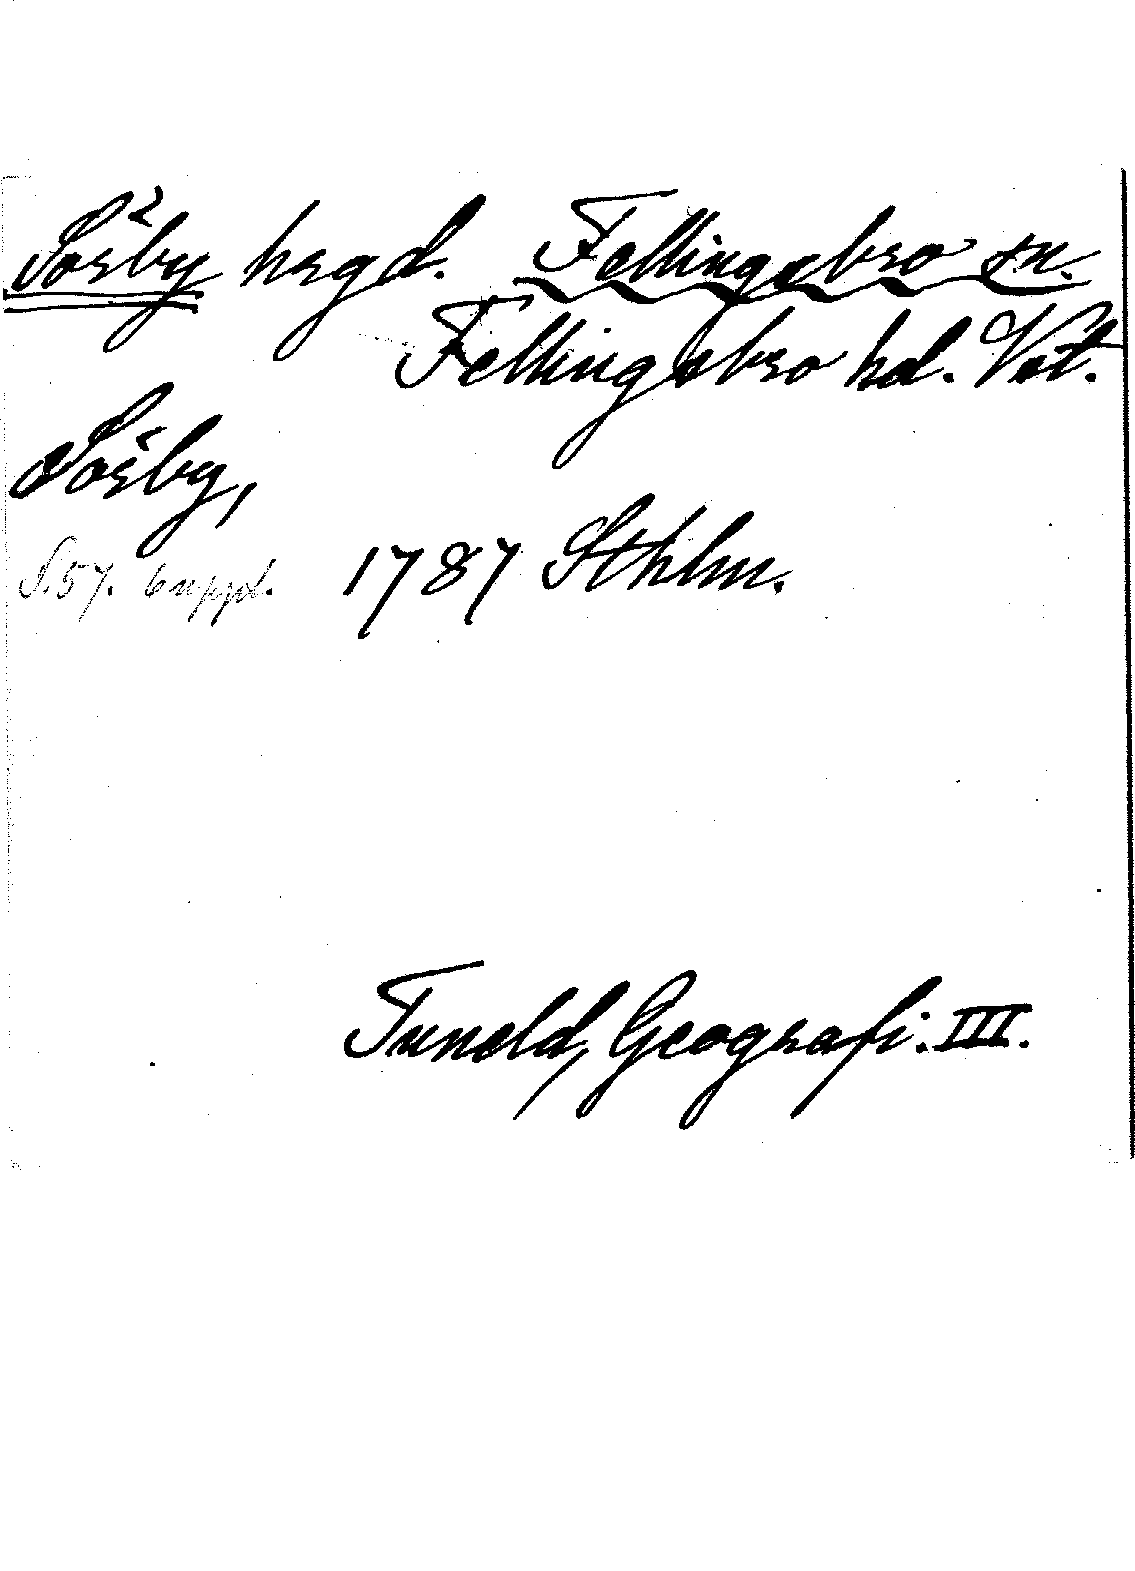 Sörby hrgd. Fellingsbro sn.
Fellingsbro hd. Vstl.
Sörby,
S. 57. 6 uppl. 1787 Sthlm.
Tuneld, Geografi. III.